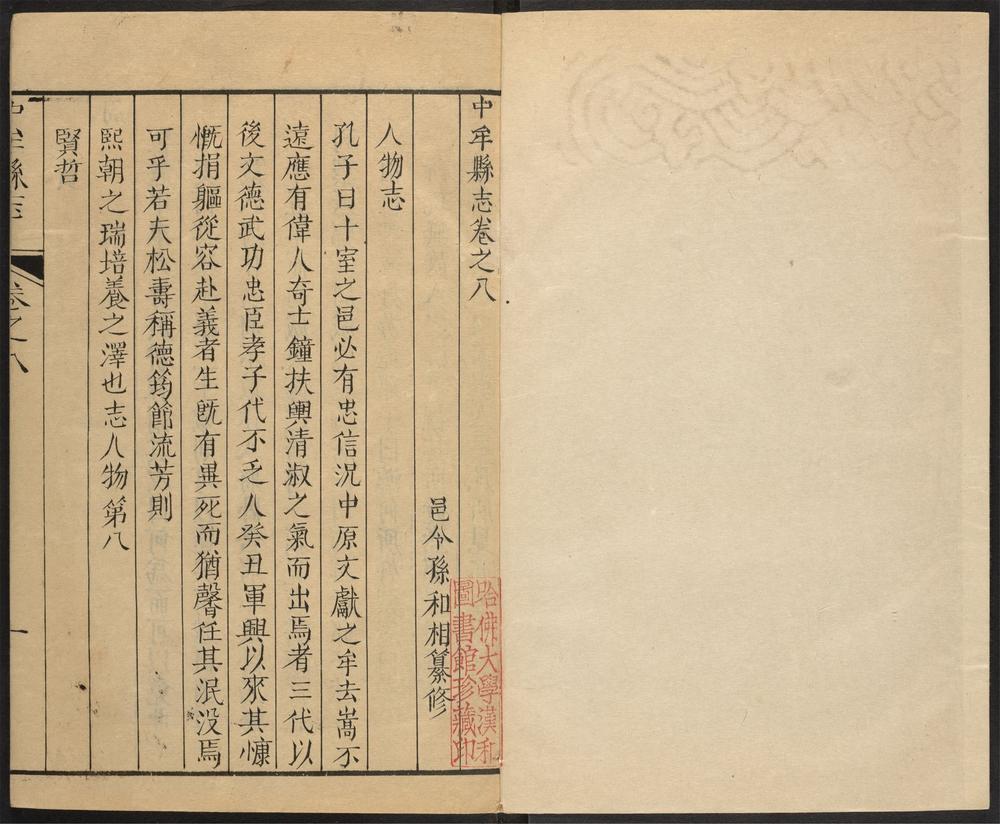 中牟縣志卷之八
邑令孫和相纂修
人物志
孔子曰十室之邑必有忠信況中原文獻之牟去嵩不
遠應有偉人奇士鐘扶輿清淑之氣而出焉者三代以
後文德武功忠臣孝子代不乏人癸丑軍興以來其慷
慨捐軀從容赴義者生旣有異死而猶馨任其泯没焉
可乎若夫松壽稱德筠節流芳則
熙朝之瑞培養之澤也志人物第八
賢哲
中牟縣志
卷之八
一
哈佛大學漢和
圖書館珍藏印